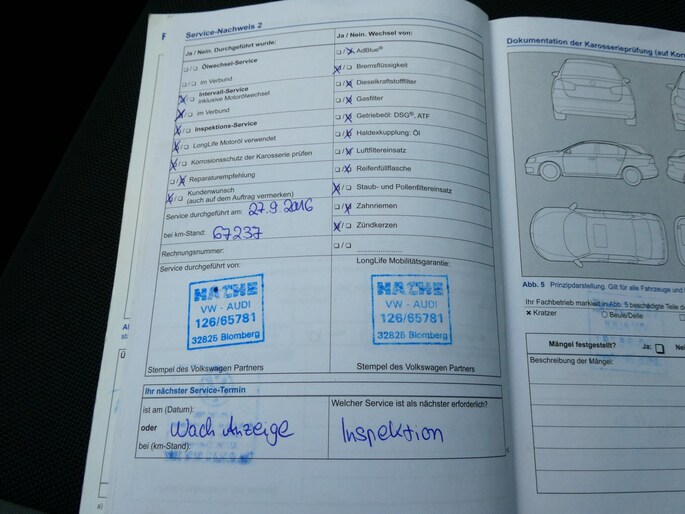 Service-Nachweis 2
Ja / Nein. Durchgeführt wurde:
☐/☐ Ölwechsel-Service
☐/☐ im Verbund
☒/☐ Intervall-Service
inklusive Motorölwechsel
☒/☐ im Verbund
☒/☐ Inspektions-Service
☒/☐ LongLife Motoröl verwendet
☒/☐ Korrosionsschutz der Karosserie prüfen
☐/☒ Reparaturempfehlung
☒/☐ Kundenwunsch
(auch auf dem Auftrag vermerken)
Service durchgeführt am: 27.9.2016
bei km-Stand: 67237
Rechnungsnummer:
Service durchgeführt von:
HACHE
VW - AUDI
126/65781
32825 Blomberg
Stempel des Volkswagen Partners
Ja / Nein. Wechsel von:
☐/☒ AdBlue®
☒/☐ Bremsflüssigkeit
☐/☒ Dieselkraftstofffilter
☐/☒ Gasfilter
☐/☒ Getriebeöl: DSG®, ATF
☐/☒ Haldexkupplung: Öl
☐/☒ Luftfiltereinsatz
☐/☒ Reifenfüllflasche
☒/☐ Staub- und Pollenfiltereinsatz
☐/☒ Zahnriemen
☒/☐ Zündkerzen
☐/☐ ....................
LongLife Mobilitätsgarantie:
HACHE
VW - AUDI
126/65781
32825 Blomberg
Stempel des Volkswagen Partners
Ihr nächster Service-Termin
ist am (Datum):
oder Nach Anzeige
bei (km-Stand):
Welcher Service ist als nächster erforderlich?
Inspektion
Dokumentation der Karosserieprüfung (auf
Abb. 5 Prinzipdarstellung. Gilt für alle Fahrzeuge und
Ihr Fachbetrieb markiert in Abb. 5 beschädigte Teile
× Kratzer ○ Beule/Delle
Mängel festgestellt? Ja: ☐
Beschreibung der Mängel: